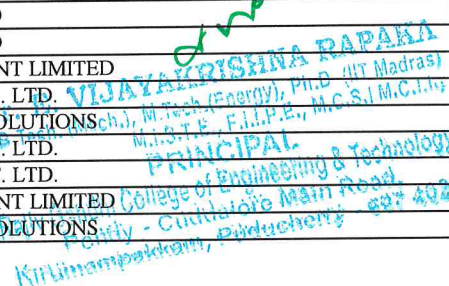 NT LIMITED
. LTD.
OLUTIONS
. LTD.
. LTD.
NT LIMITED
OLUTIONS
VIJAYAKRISHNA RAPAKA
B.Tech. (Mech.), M.Tech.(Energy), Ph.D (IIT Madras)
M.I.S.T.E., F.I.I.P.E., M.C.S.I M.C.I.I.
PRINCIPAL
College of Engineering & Technology
Pondy - Cuddalore Main Road,
Kirumampakkam, Puducherry - 607 402